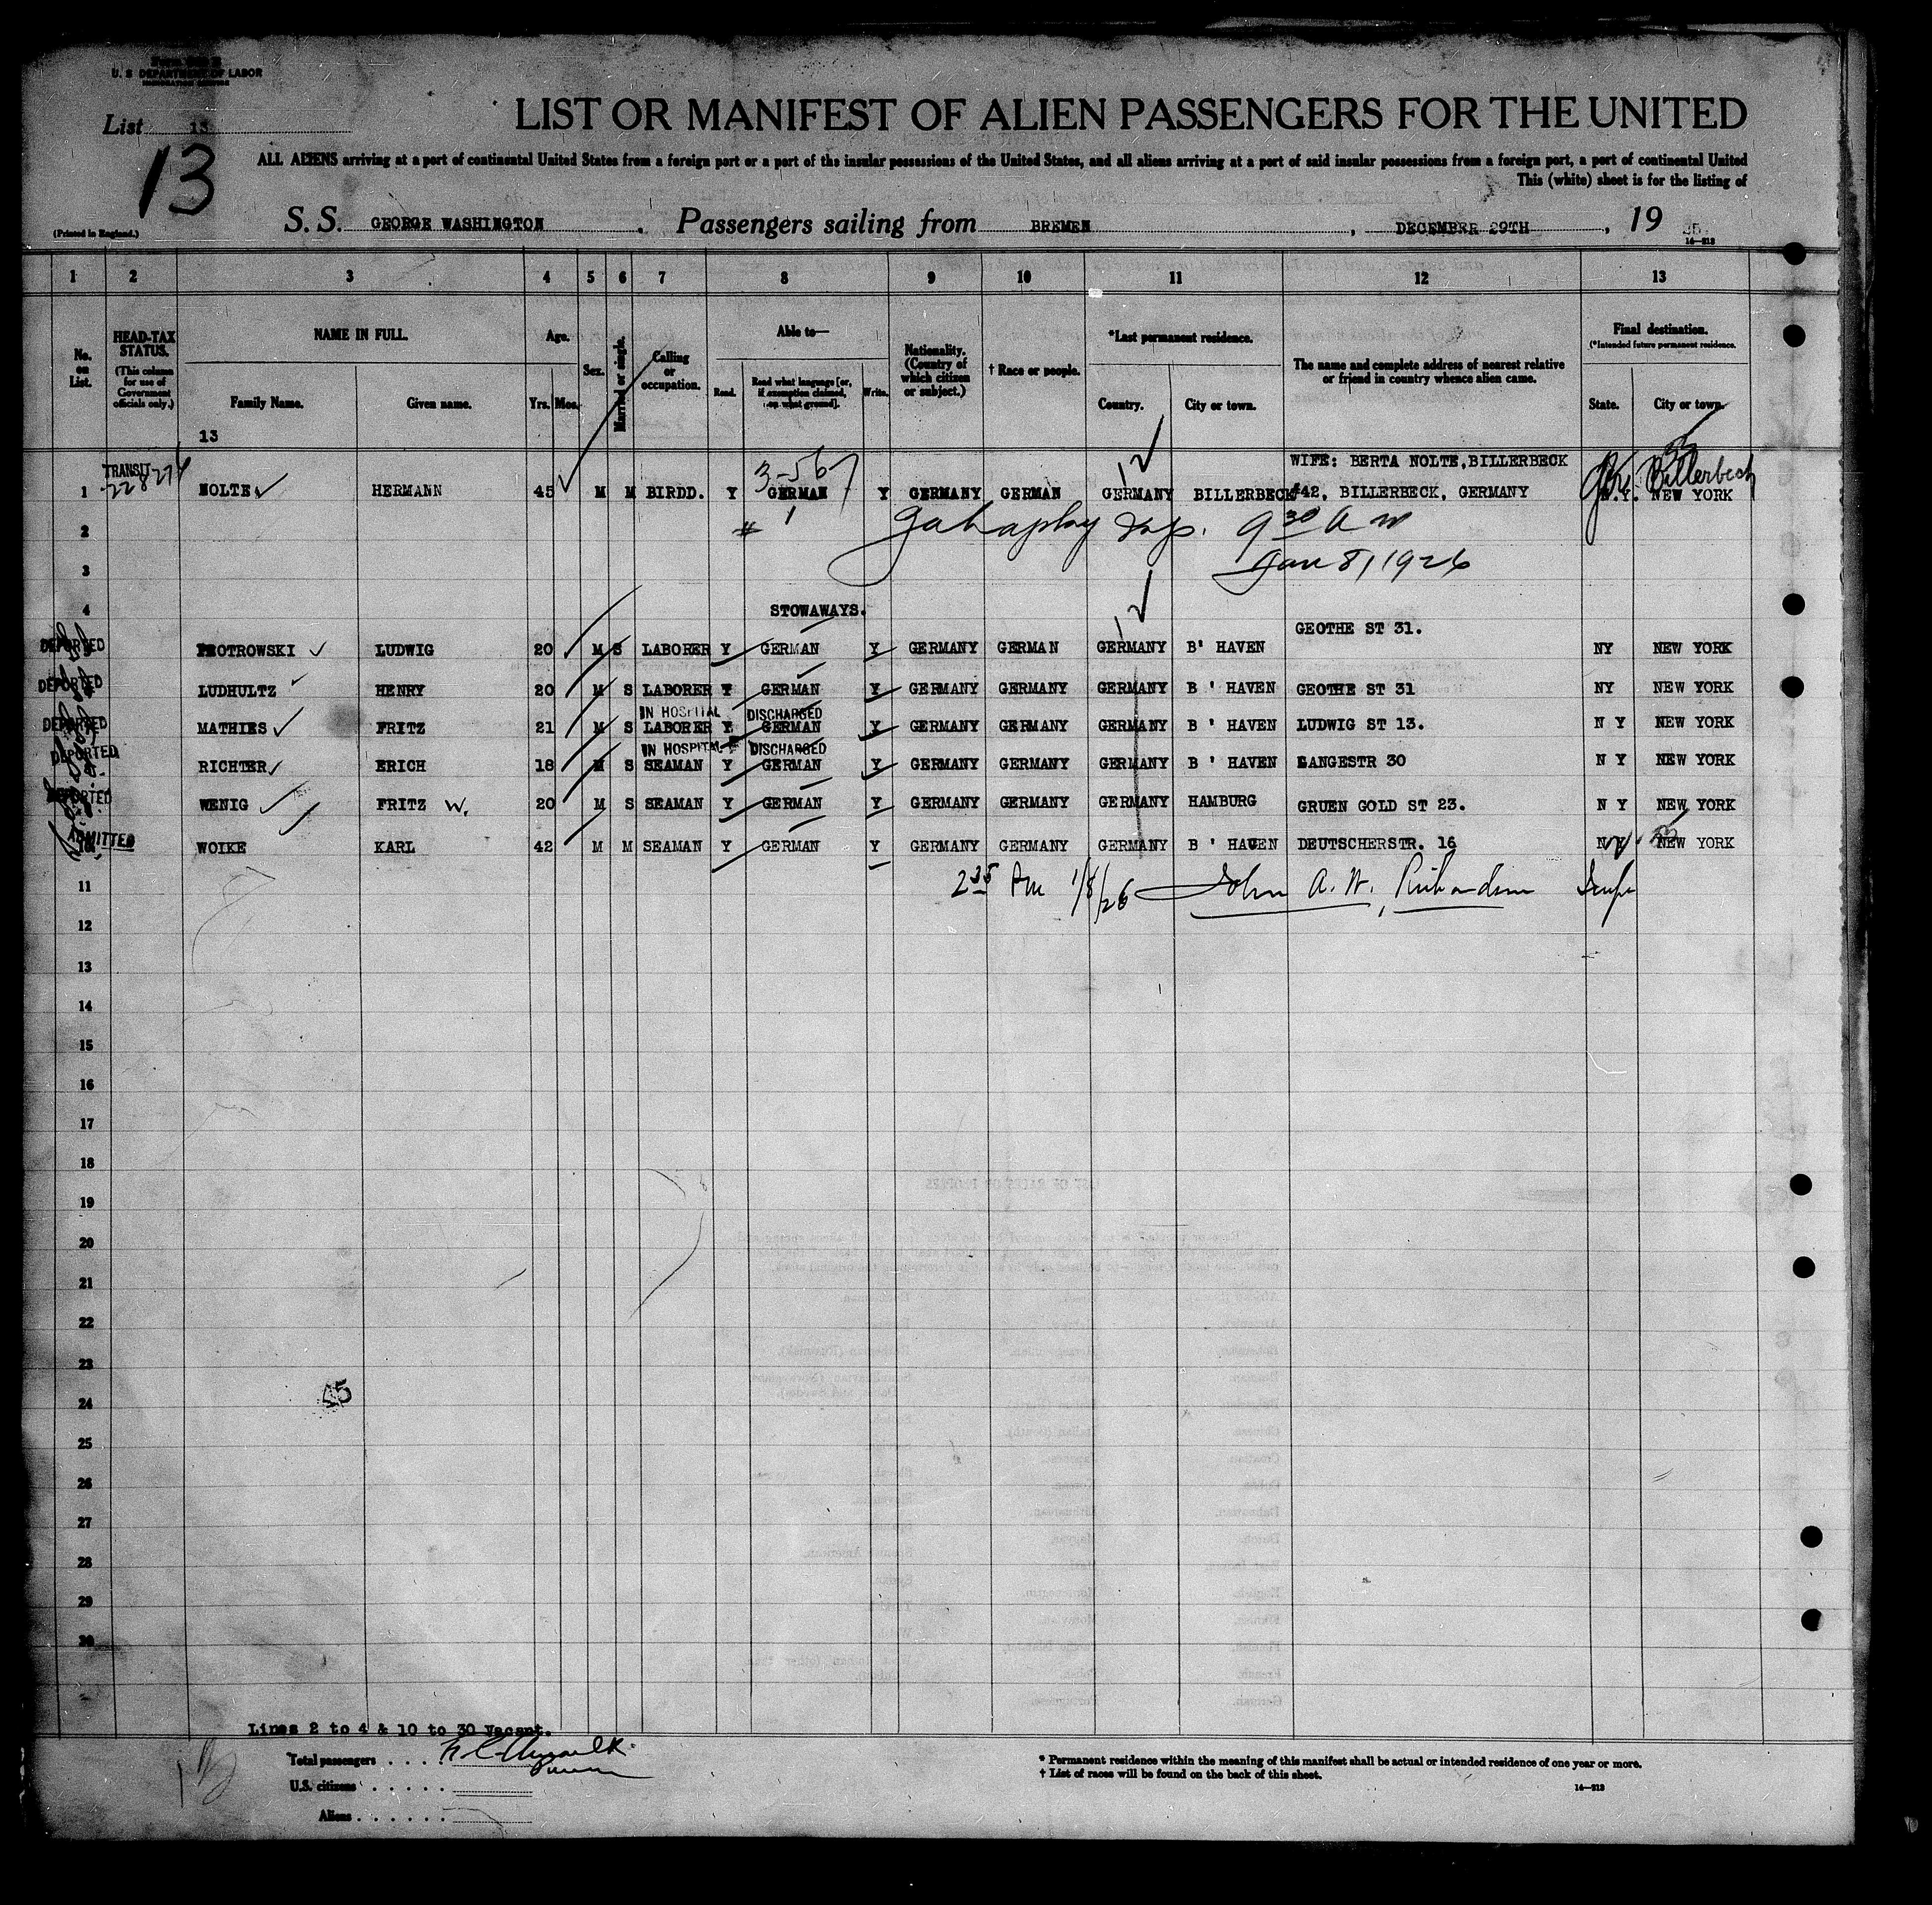 U. S DEPARTMENT OF LABOR
List 13
13
LIST OR MANIFEST OF ALIEN PASSENGERS FOR THE UNITED
ALL ALIENS arriving at a port of continental United States from a foreign port or a port of the insular possessions of the United States, and all aliens arriving at a port of said insular possessions from a foreign port, a port of continental United
This (white) sheet is for the listing of
(Printed in England.)
S. S. GEORGE WASHINGTON, Passengers sailing from BREMEN, DECEMBER 29TH, 19 25.
16—213
1 2 3 4 5 6 7 8 9 10 11 12 13
No. on List.
HEAD-TAX STATUS.
(This column for use of Government officials only.)
NAME IN FULL.
Family Name. Given name.
Age.
Yrs. Mos.
Sex.
Married or single.
Calling or occupation.
Able to—
Read. Read what language [or, if exemption claimed, on what ground]. Write.
Nationality. (Country of which citizen or subject.)
† Race or people.
*Last permanent residence.
Country. City or town.
The name and complete address of nearest relative or friend in country whence alien came.
Final destination.
(*Intended future permanent residence.
State. City or town.
13
TRANSIT
3-567
WIFE: BERTA NOLTE, BILLERBECK
Billerbeck
1 NOLTE HERMANN 45 M M BIRDD. Y GERMAN Y GERMANY GERMAN GERMANY BILLERBECK #42, BILLERBECK, GERMANY N.Y. NEW YORK
2 9 30 A M
3 Jan 8, 1926
4 STOWAWAYS.
GEOTHE ST 31.
DEPORTED PIOTROWSKI LUDWIG 20 M S LABORER Y GERMAN Y GERMANY GERMAN GERMANY B' HAVEN NY NEW YORK
DEPORTED LUDHULTZ HENRY 20 M S LABORER Y GERMAN Y GERMANY GERMANY GERMANY B ' HAVEN GEOTHE ST 31 NY NEW YORK
IN HOSPITAL DISCHARGED
DEPORTED MATHIES FRITZ 21 M S LABORER Y GERMAN Y GERMANY GERMANY GERMANY B ' HAVEN LUDWIG ST 13. N Y NEW YORK
IN HOSPITAL DISCHARGED
DEPORTED RICHTER ERICH 18 M S SEAMAN Y GERMAN Y GERMANY GERMANY GERMANY B ' HAVEN LANGESTR 30 N Y NEW YORK
DEPORTED WENIG FRITZ W. 20 M S SEAMAN Y GERMAN Y GERMANY GERMANY GERMANY HAMBURG GRUEN GOLD ST 23. N Y NEW YORK
ADMITTED WOIKE KARL 42 M M SEAMAN Y GERMAN Y GERMANY GERMANY GERMANY B ' HAVEN DEUTSCHERSTR. 16 N Y NEW YORK
11 2 35 Pm 1/8/26 John A. W. Richardson Insp
12
13
14
15
16
17
18
19
20
21
22
23
24
45
25
26
27
28
29
30
Lines 2 to 4 & 10 to 30 Vacant.
Total passengers
U.S. citizens
Aliens
* Permanent residence within the meaning of this manifest shall be actual or intended residence of one year or more.
† List of races will be found on the back of this sheet.
16—213